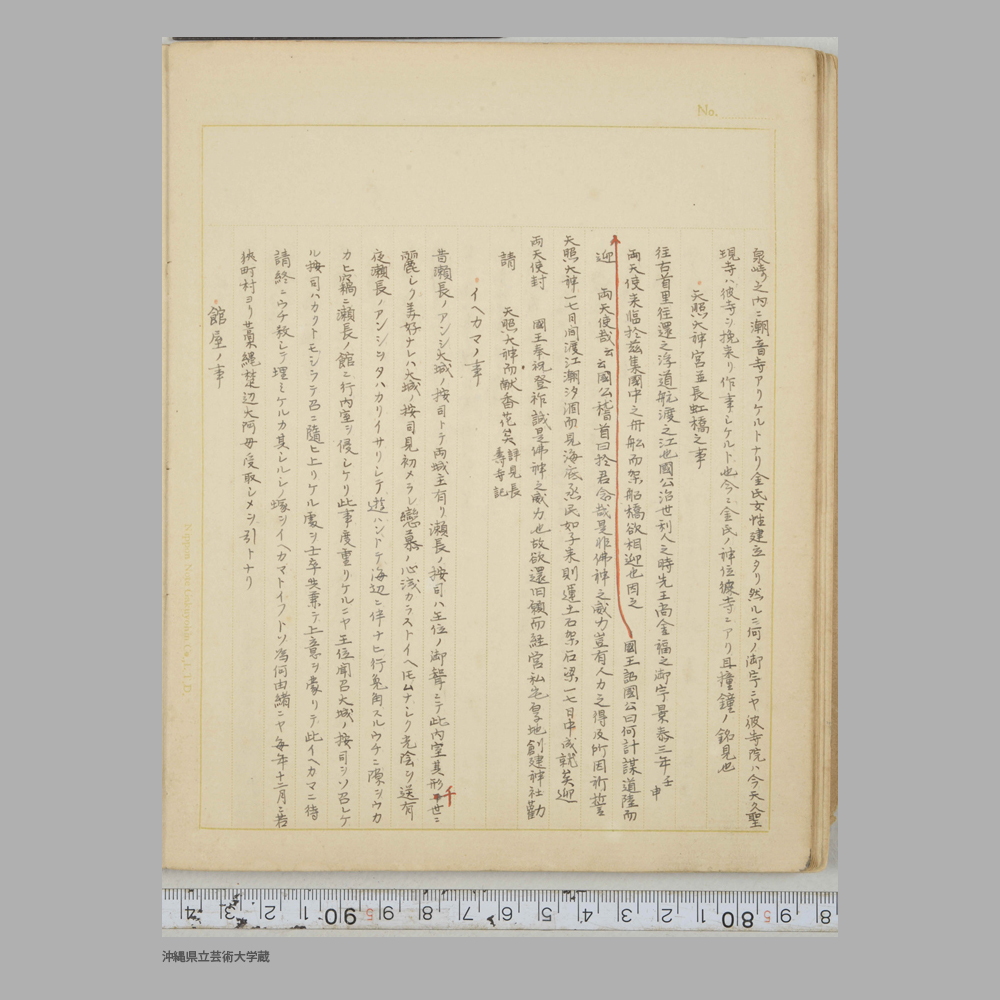 No.
泉崎之内ニ潮音寺アリケルトナリ金氏女性建立タリ然ルニ何ノ御宇ニヤ彼寺院ハ今天久聖
現寺ハ彼寺ヲ挽来リ作事シケルト也今ニ金氏ノ神位彼寺ニアリ且撞鐘ノ銘見也
天照大神宮並長虹橋之事
往古首里往還之浮道航渡之江也國公治世利人之時先王尚金福之御宇景泰三年壬申
両天使来臨於茲集國中之舟舩而架船橋欲相迎也因之
國王詔國公曰何計謀道陸而
迎 両天使哉云云國公稽首曰於君命哉是非佛神之威力豈有人力之得及所因祈誓
天照大神一七日間渡江潮汐涸而見海底烝民如子来則運土石架石梁一七日中成就矣迎
両天使封 國王奉祝登祚誠是佛神之威力也故欲還旧願而経宮私宅皇地創建神社勸
請 天照大神而献香花矣詳見長寿寺記
イヘカマノ事
昔瀬長ノアンシ大城ノ按司トテ両城主有リ瀬長ノ按司ハ王位ノ御聟ニテ此内室其形世ニ
千
麗シク美好ナレハ大城ノ按司見初メラレ戀慕ノ心浅カラストイヘ𪜈ムナシク光陰ヲ送有
夜瀬長ノアンシヲタハカリイサリシテ遊ハントテ海辺ニ伴ナヒ行兎角スルウチニ隙ヲウカ
カヒ窃ニ瀬長ノ館ニ行内室ヲ侵シケリ此事度重リケルニヤ王位聞召大城ノ按司ヲソ召レケ
ル按司ハカクトモシラテ召ニ隨ヒ上リケル處ヲ士卒共兼テ上意ヲ蒙リテ此イヘカマニ待
請終ニウチ殺シテ埋ミケルカ其シルシノ塚ヲイヘカマトイフトソ為何由緒ニヤ毎年十二月ニ若
狹町村ヨリ藁縄楚辺大阿母受取シメヲ引トナリ
館屋ノ事
4 3 2 1 90 9 8 7 6 5 4 3 2 1 80 9 8
沖縄県立芸術大学蔵